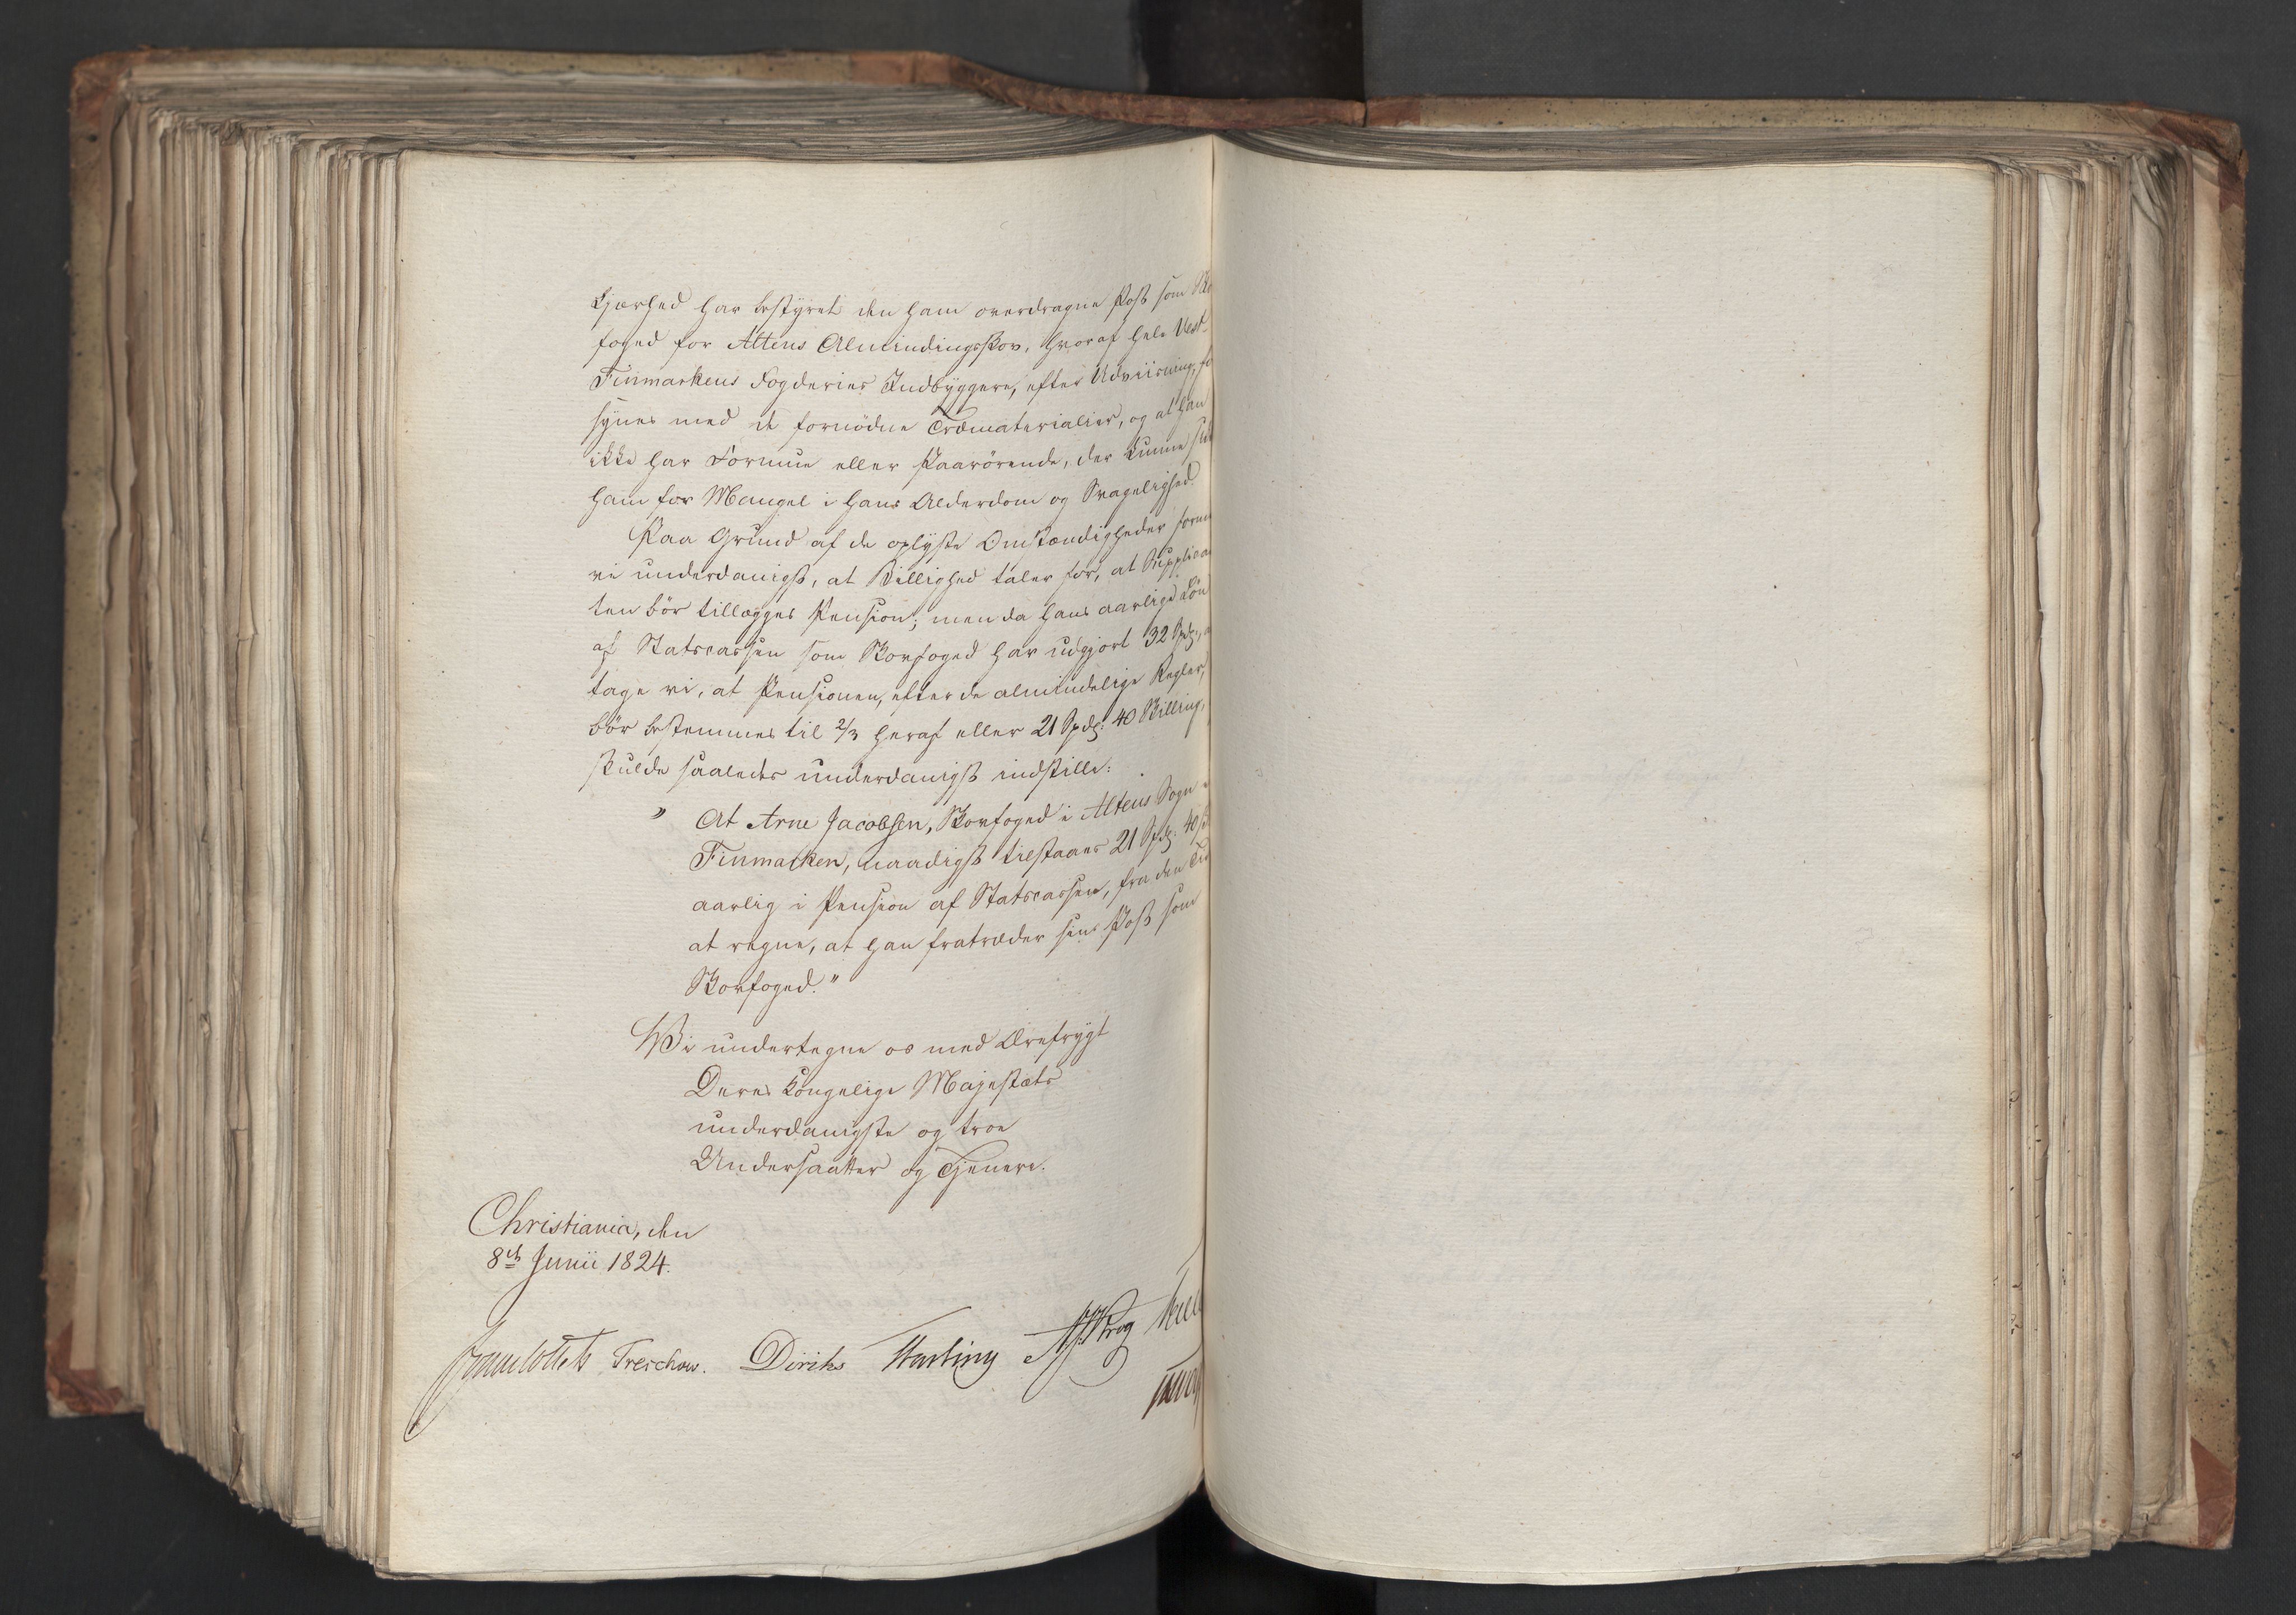 kjærhed har bestyret den ham overdragne Post som
foged for Altens Almindingsskov, hvoraf hele Vest-
Finmarkens Fogderies Indbyggere, efter Udviisning,
synes med de fornödne Træmaterialier, og at han
ikke har Formue eller Paarörende, der kunne
ham for Mangel i hans Alderdom og Svagelighed.
Paa Grund af de oplyste Omstændigheder
vi underdanigst, at Billighed taler for, at
ten bör tillægges Pension; men da hans aarlige
af Statscassen som Skovfoged har udgjort 32 Spd:,
tage vi, at Pensionen, efter de almindelige Regler,
bör bestemmes til 2/3 heraf eller 21 Spd: 40 Skilling,
skulde saaledes underdanigst indstille:
" At Arne Jacobsen, Skovfoged i Altens Sogn
Finmarken, naadigst tilstaaes 21 Spd: 40
aarlig i Pension af Statscassen, fra den
at regne, at han fratræder sin Post som
Skovfoged."
Vi undertegne os med Ærefrygt
Deres Kongelige Majestæts
underdanigste og troe
Undersaatter og Tjenere.
Christiania, den
8de Junii 1824.
Treschow. Diriks